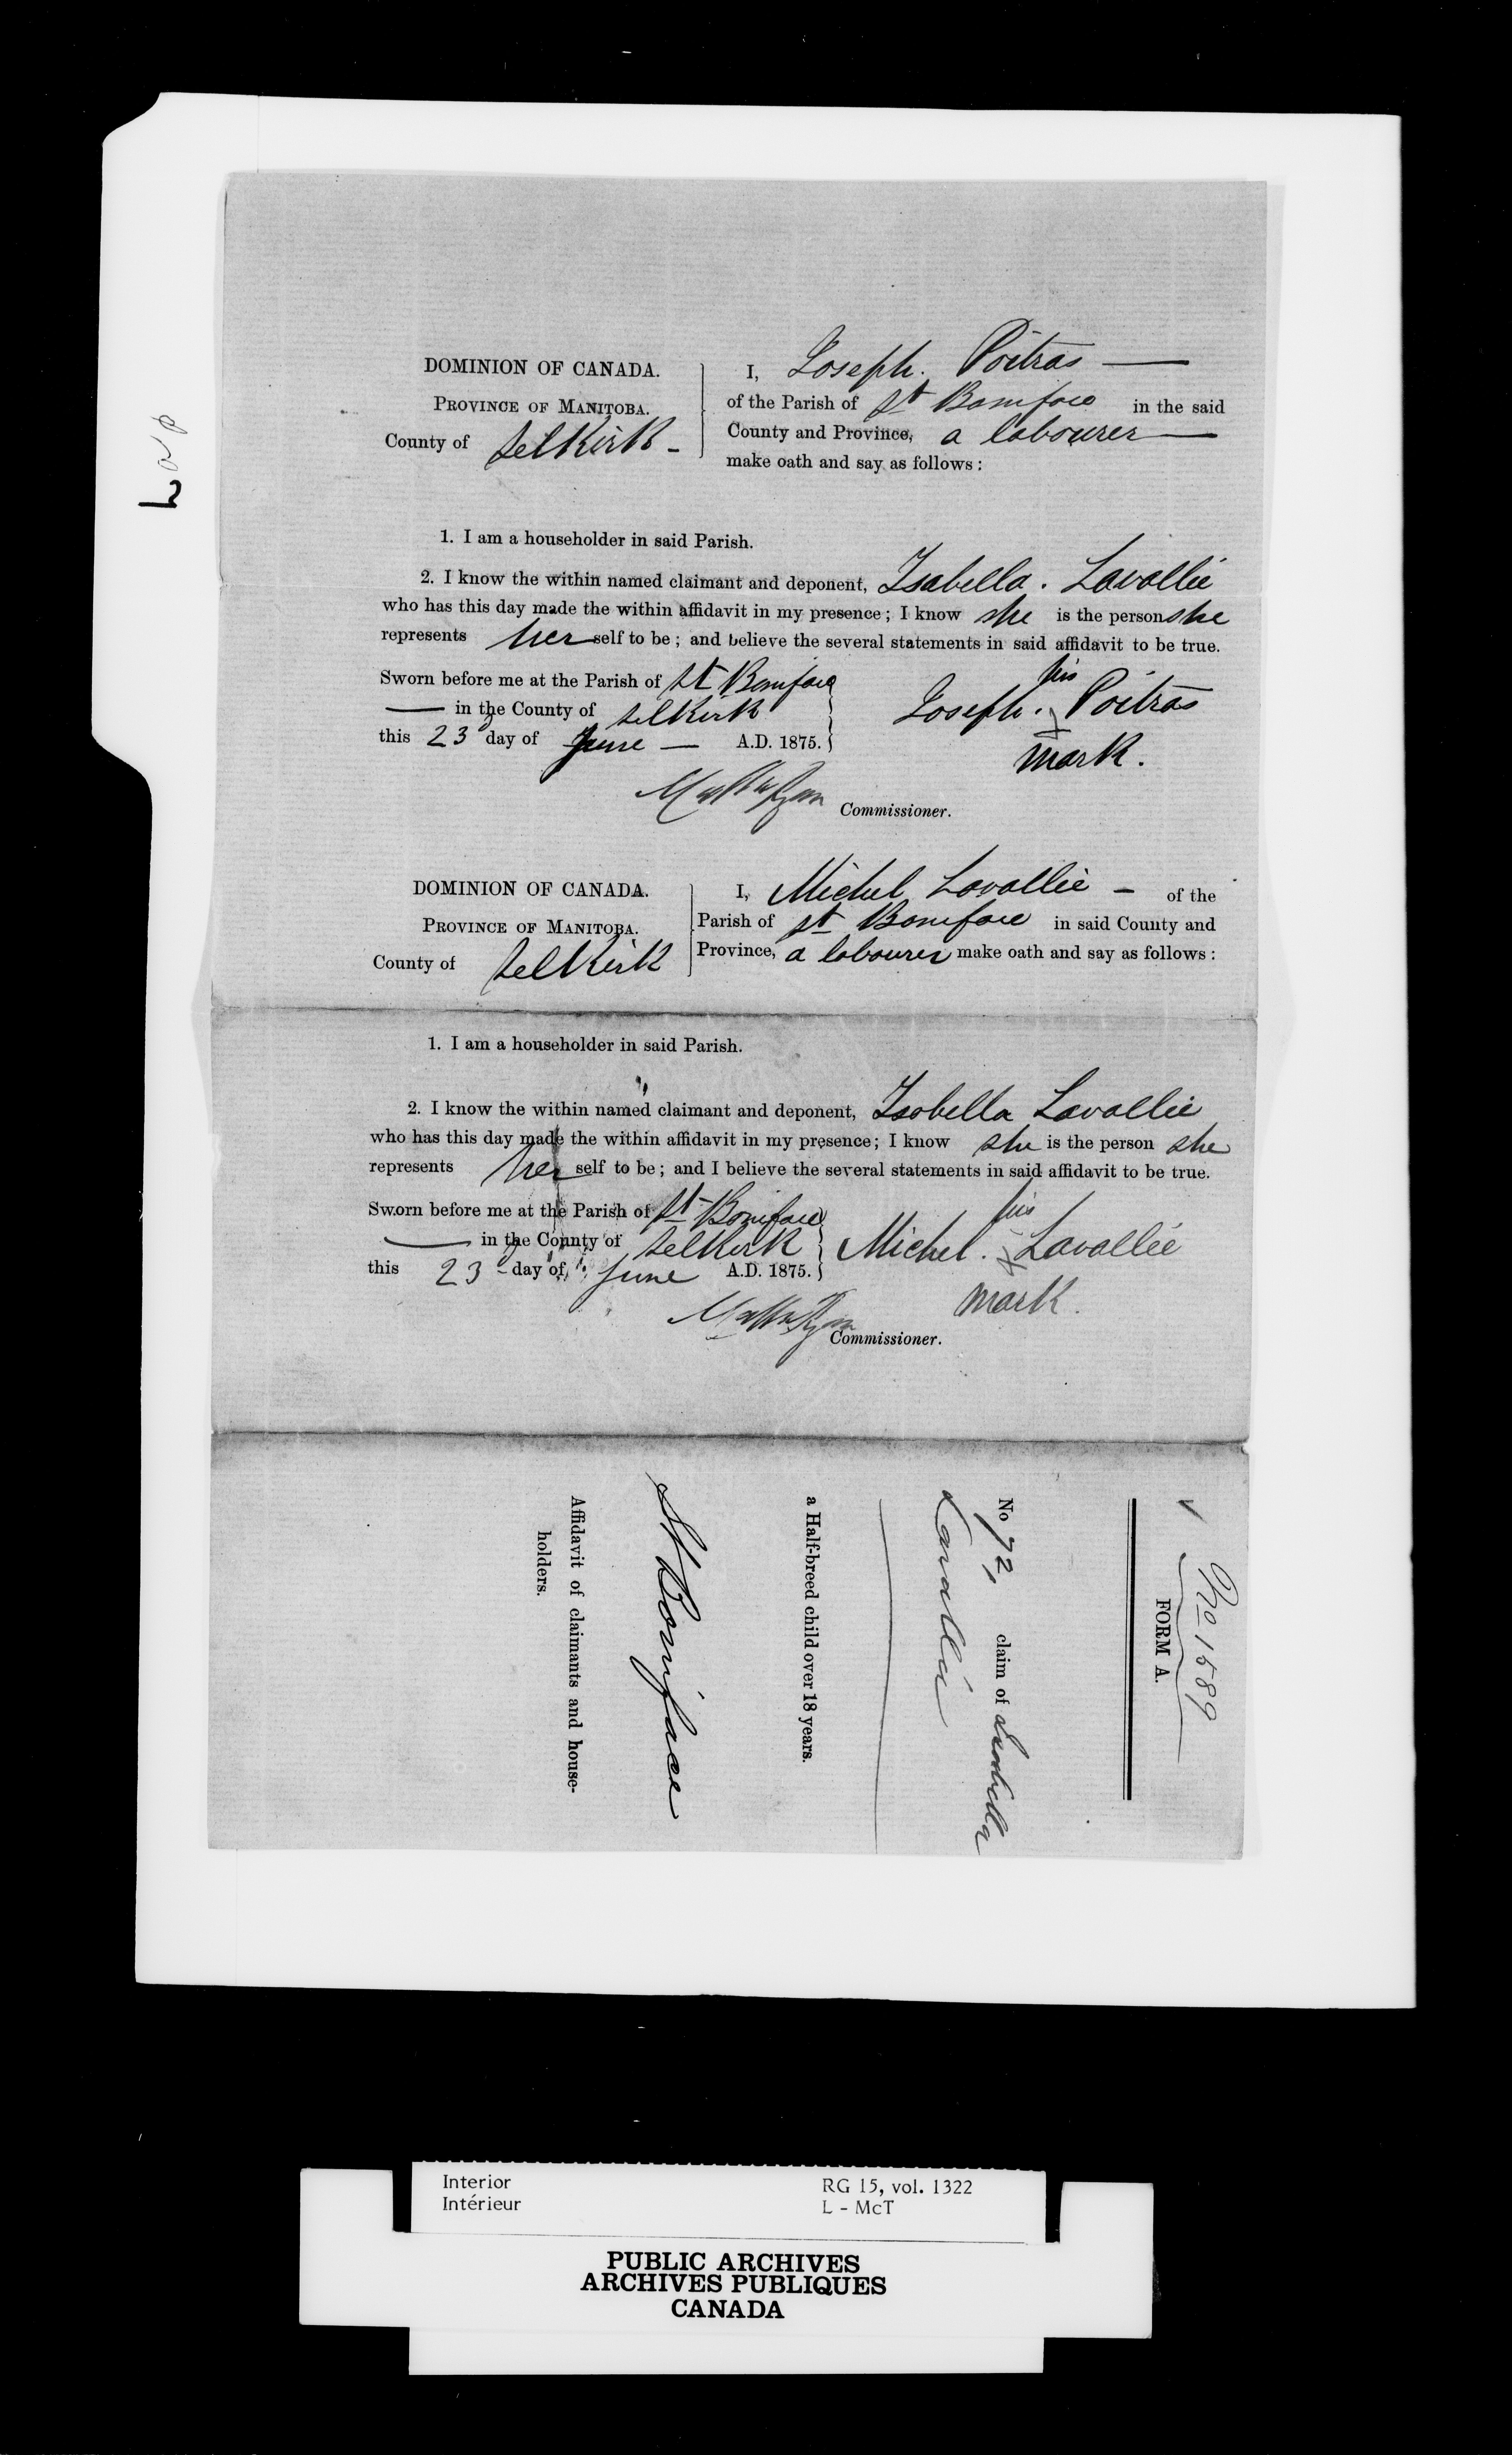 DOMINION OF CANADA.
PROVINCE OF MANITOBA.
County of Selkirk -
I, Joseph. Poitras —
of the Parish of St Boniface in the said
County and Province, a labourer —
make oath and say as follows :
1. I am a householder in said Parish.
2. I know the within named claimant and deponent, Isabella. Lavallée
who has this day made the within affidavit in my presence; I know she is the person she
represents her self to be; and believe the several statements in said affidavit to be true.
Sworn before me at the Parish of St Boniface
— in the County of Selkirk
this 23d day of June — A.D. 1875.
his
Joseph. x Poitras
mark.
Commissioner.
DOMINION OF CANADA.
PROVINCE OF MANITOBA.
County of Selkirk
I, Michel Lavallée - of the
Parish of St Boniface in said County and
Province, a labourer make oath and say as follows :
1. I am a householder in said Parish.
2. I know the within named claimant and deponent, Isabella Lavallée
who has this day made the within affidavit in my presence; I know she is the person she
represents her self to be; and I believe the several statements in said affidavit to be true.
Sworn before me at the Parish of St Boniface
— in the County of Selkirk
this 23d day of June A.D. 1875.
his
Michel. x Lavallée
mark.
Commissioner.
No 1589
FORM A.
No 72, claim of Isabella
Lavallée
a Half-breed child over 18 years.
St Boniface
Affidavit of claimants and house-
holders.
Interior
Intérieur
RG 15, vol. 1322
L - McT
PUBLIC ARCHIVES
ARCHIVES PUBLIQUES
CANADA